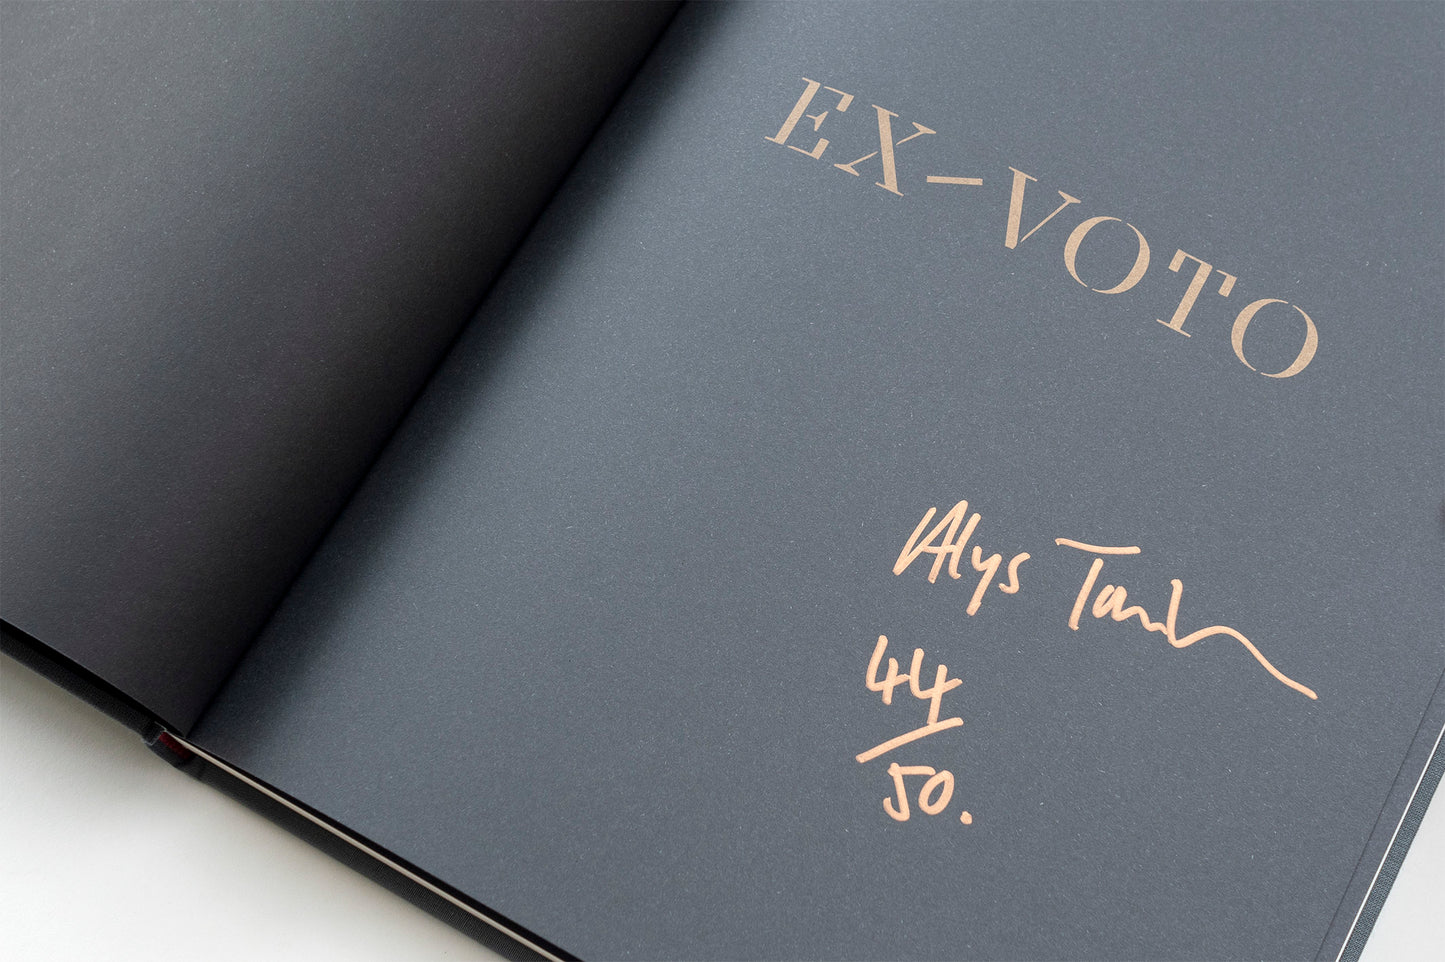 EX–VOTO
Alys Tomlinson
44
50.